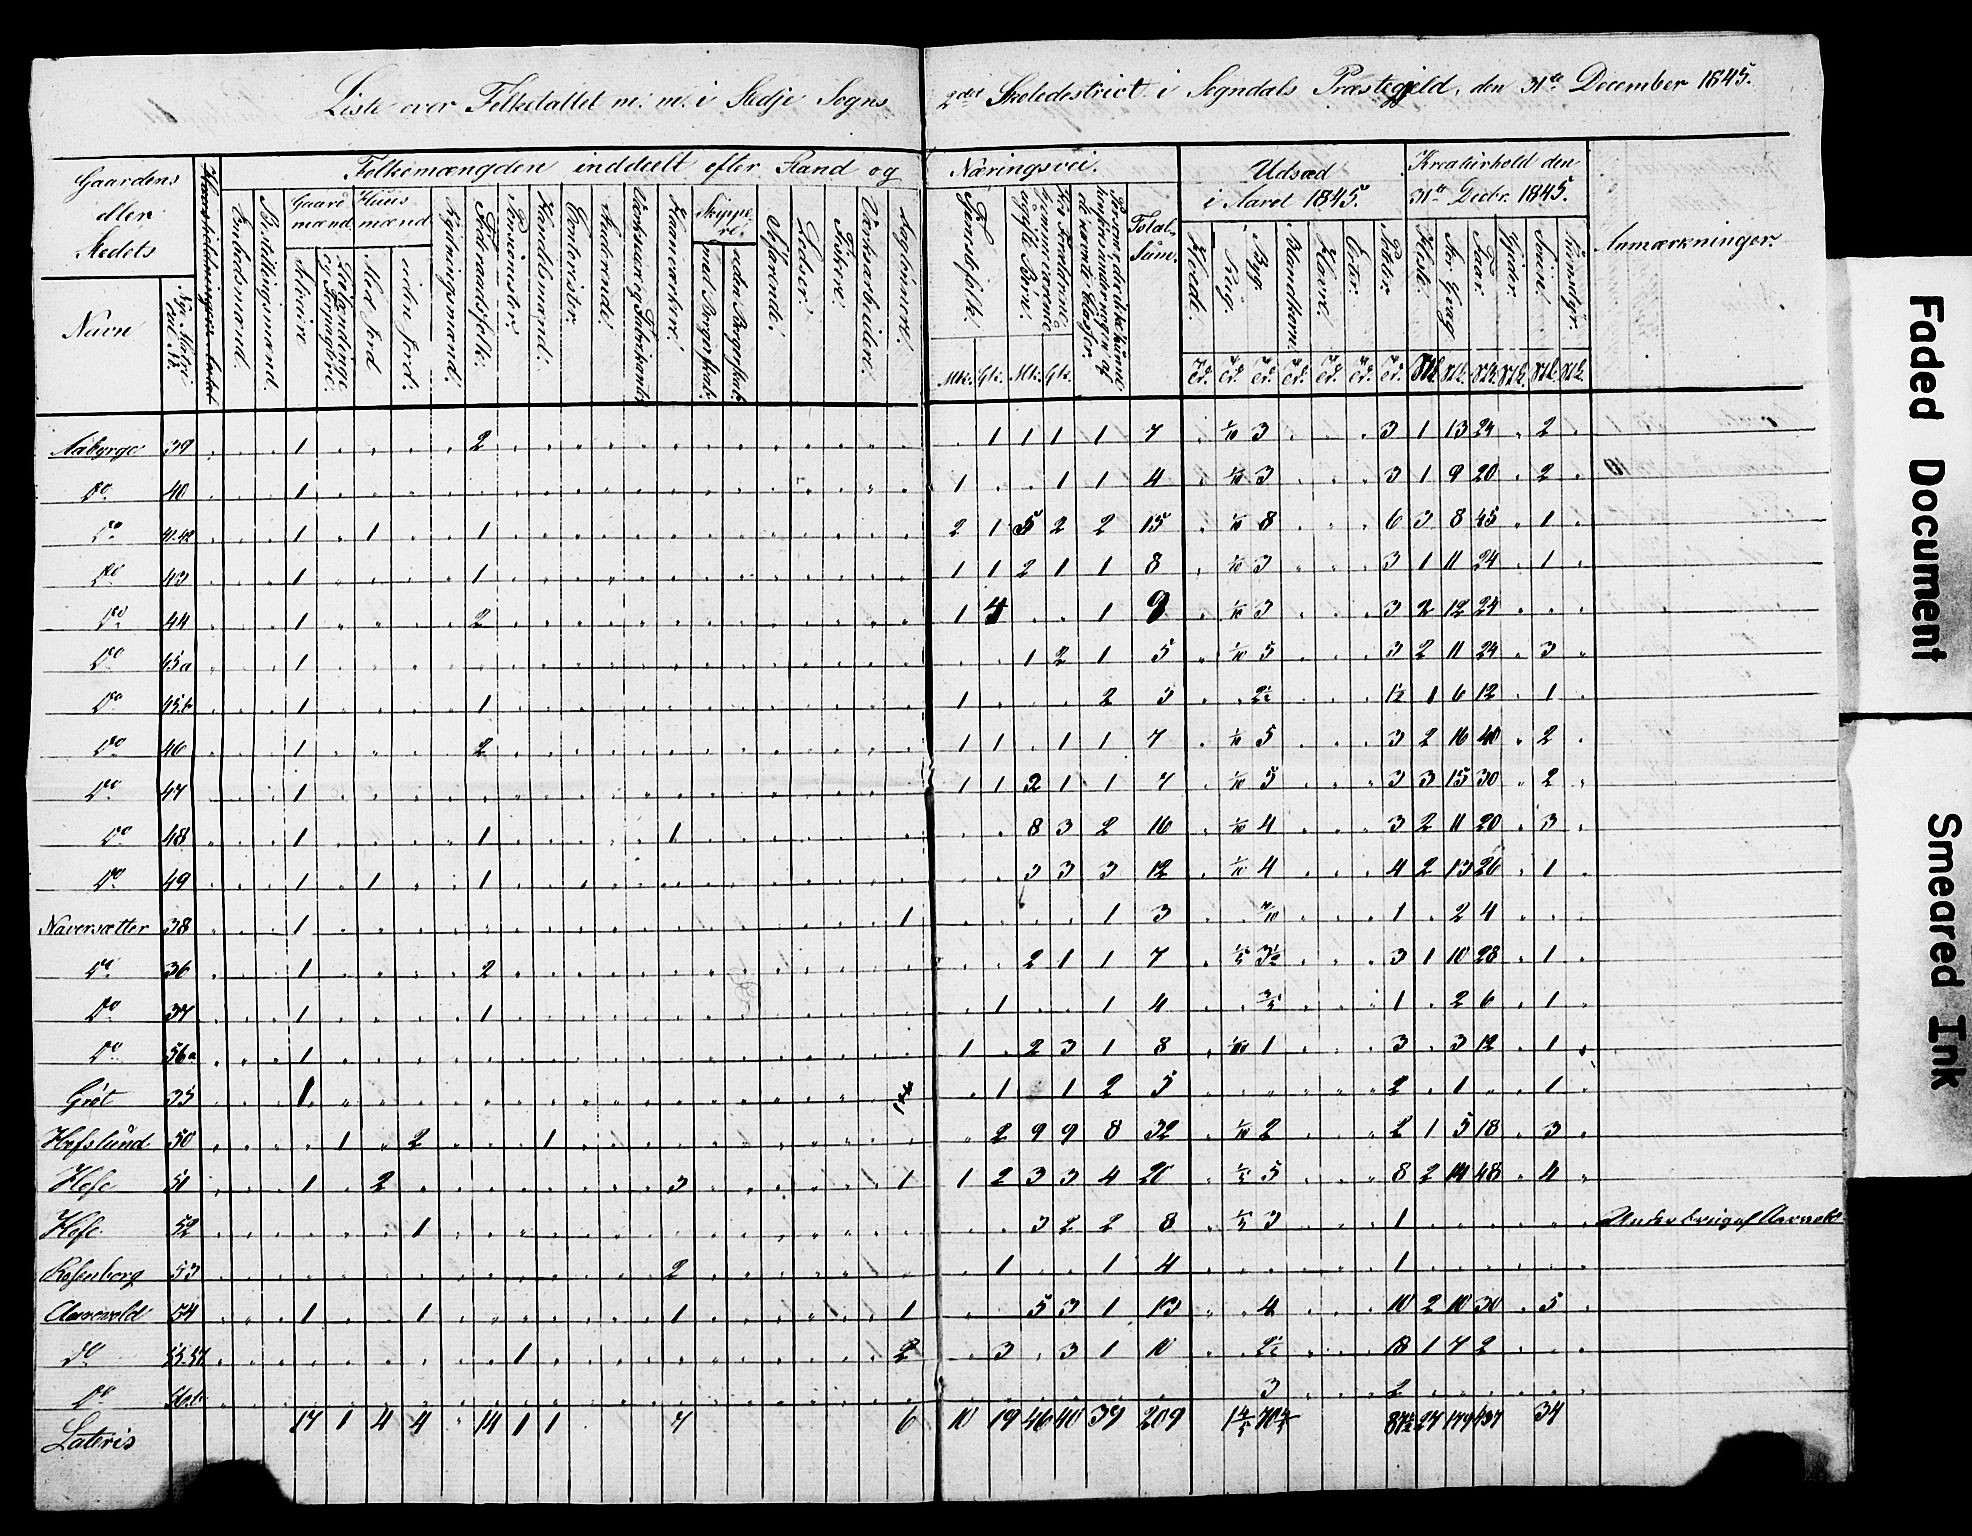 Liste over Folketallet m: m: i Stedje Sogns 2det Skoledistrict i Sogndals Præstegjeld, den 31te December 1845.
Gaardens eller Stedets
Navn
Folkemængden inddeelt efter Stand og Næringsvei.
Embedsmænd.
Bestillingsmænd.
Gaardmænd
Selveiere
Huusmænd
Med Jord
uden Jord.
Rydningsmænd.
Föderaadsfolk.
Pensionister.
Handelsmænd.
Contorister.
Studerende.
Haandværkere.
Skippere.
med Borgerskab.
uden Borgerskab.
Söfarende.
Lodser.
Fiskere.
Værksarbeidere.
Daglönnere.
Tjenestefolk.
Mk. Qk. Mk. Qk.
Total-Sum.
Udsæd i Aaret 1845.
Hvede.
Rug.
Byg.
Blandkorn.
Havre.
Erter.
Poteter.
Kreaturhold den 31te Decbr. 1845.
Heste.
Stor Qvæg.
Faar.
Gjeder.
Sviin.
Rensdyr.
Anmærkninger.
Aaberge 39 1 2 1 1 1 1 7 1/10 3 3 1 13 24 2
Do 40 1 1 1 1 4 1/10 3 3 1 9 20 2
Do 41.42 1 1 1 2 1 5 2 2 15 1/10 8 6 3 8 45 1
Do 43 1 1 1 1 2 1 1 8 1/10 3 3 1 11 24 1
Do 44 1 2 1 4 1 9 1/10 3 3 2 12 24
Do 45a 1 1 2 1 5 1/10 5 3 2 11 24 3
Do 45.b 1 1 1 2 3 2½ 1½ 1 6 12 1
Do 46 1 2 1 1 1 1 7 1/10 5 3 2 16 40 2
Do 47 1 1 1 2 1 1 7 1/10 5 3 3 15 30 2
Do 48 1 1 1 8 3 2 16 1/10 4 3 2 11 20 3
Do 49 1 1 1 3 3 3 12 1/10 4 4 2 13 26 1
Naversætter 38 1 1 1 3 7/10 1 2 4
Do 36 1 2 2 1 1 7 1/5 3½ 3 1 10 28 1
Do 37 1 1 1 1 4 3/5 1 2 6 1
Do 56a 1 1 2 3 1 8 1/10 1 3 3 12 1
Gröt 35 1 1 1 2 5 2 1 1
Hofslund 50 1 2 1 2 9 9 8 32 1/10 2 2 1 5 18 3
Hofe 51 1 2 3 1 1 2 3 3 4 20 1/5 5 8 2 14 48 4
Hofe 52 1 3 2 2 8 1/5 3 1 Underbrug af
Rosenborg 53 2 1 1 4 1
Aarevold 54 1 1 1 1 5 3 1 13 4 10 2 10 30 5
Do 55.57 1 2 3 3 1 10 2½ 8 1 7 2
Do 56.b 3 2
Lateris 17 1 4 4 14 1 1 7 6 10 19 46 40 39 209 87½ 27 179 437 34
Faded Document
Smeared Ink